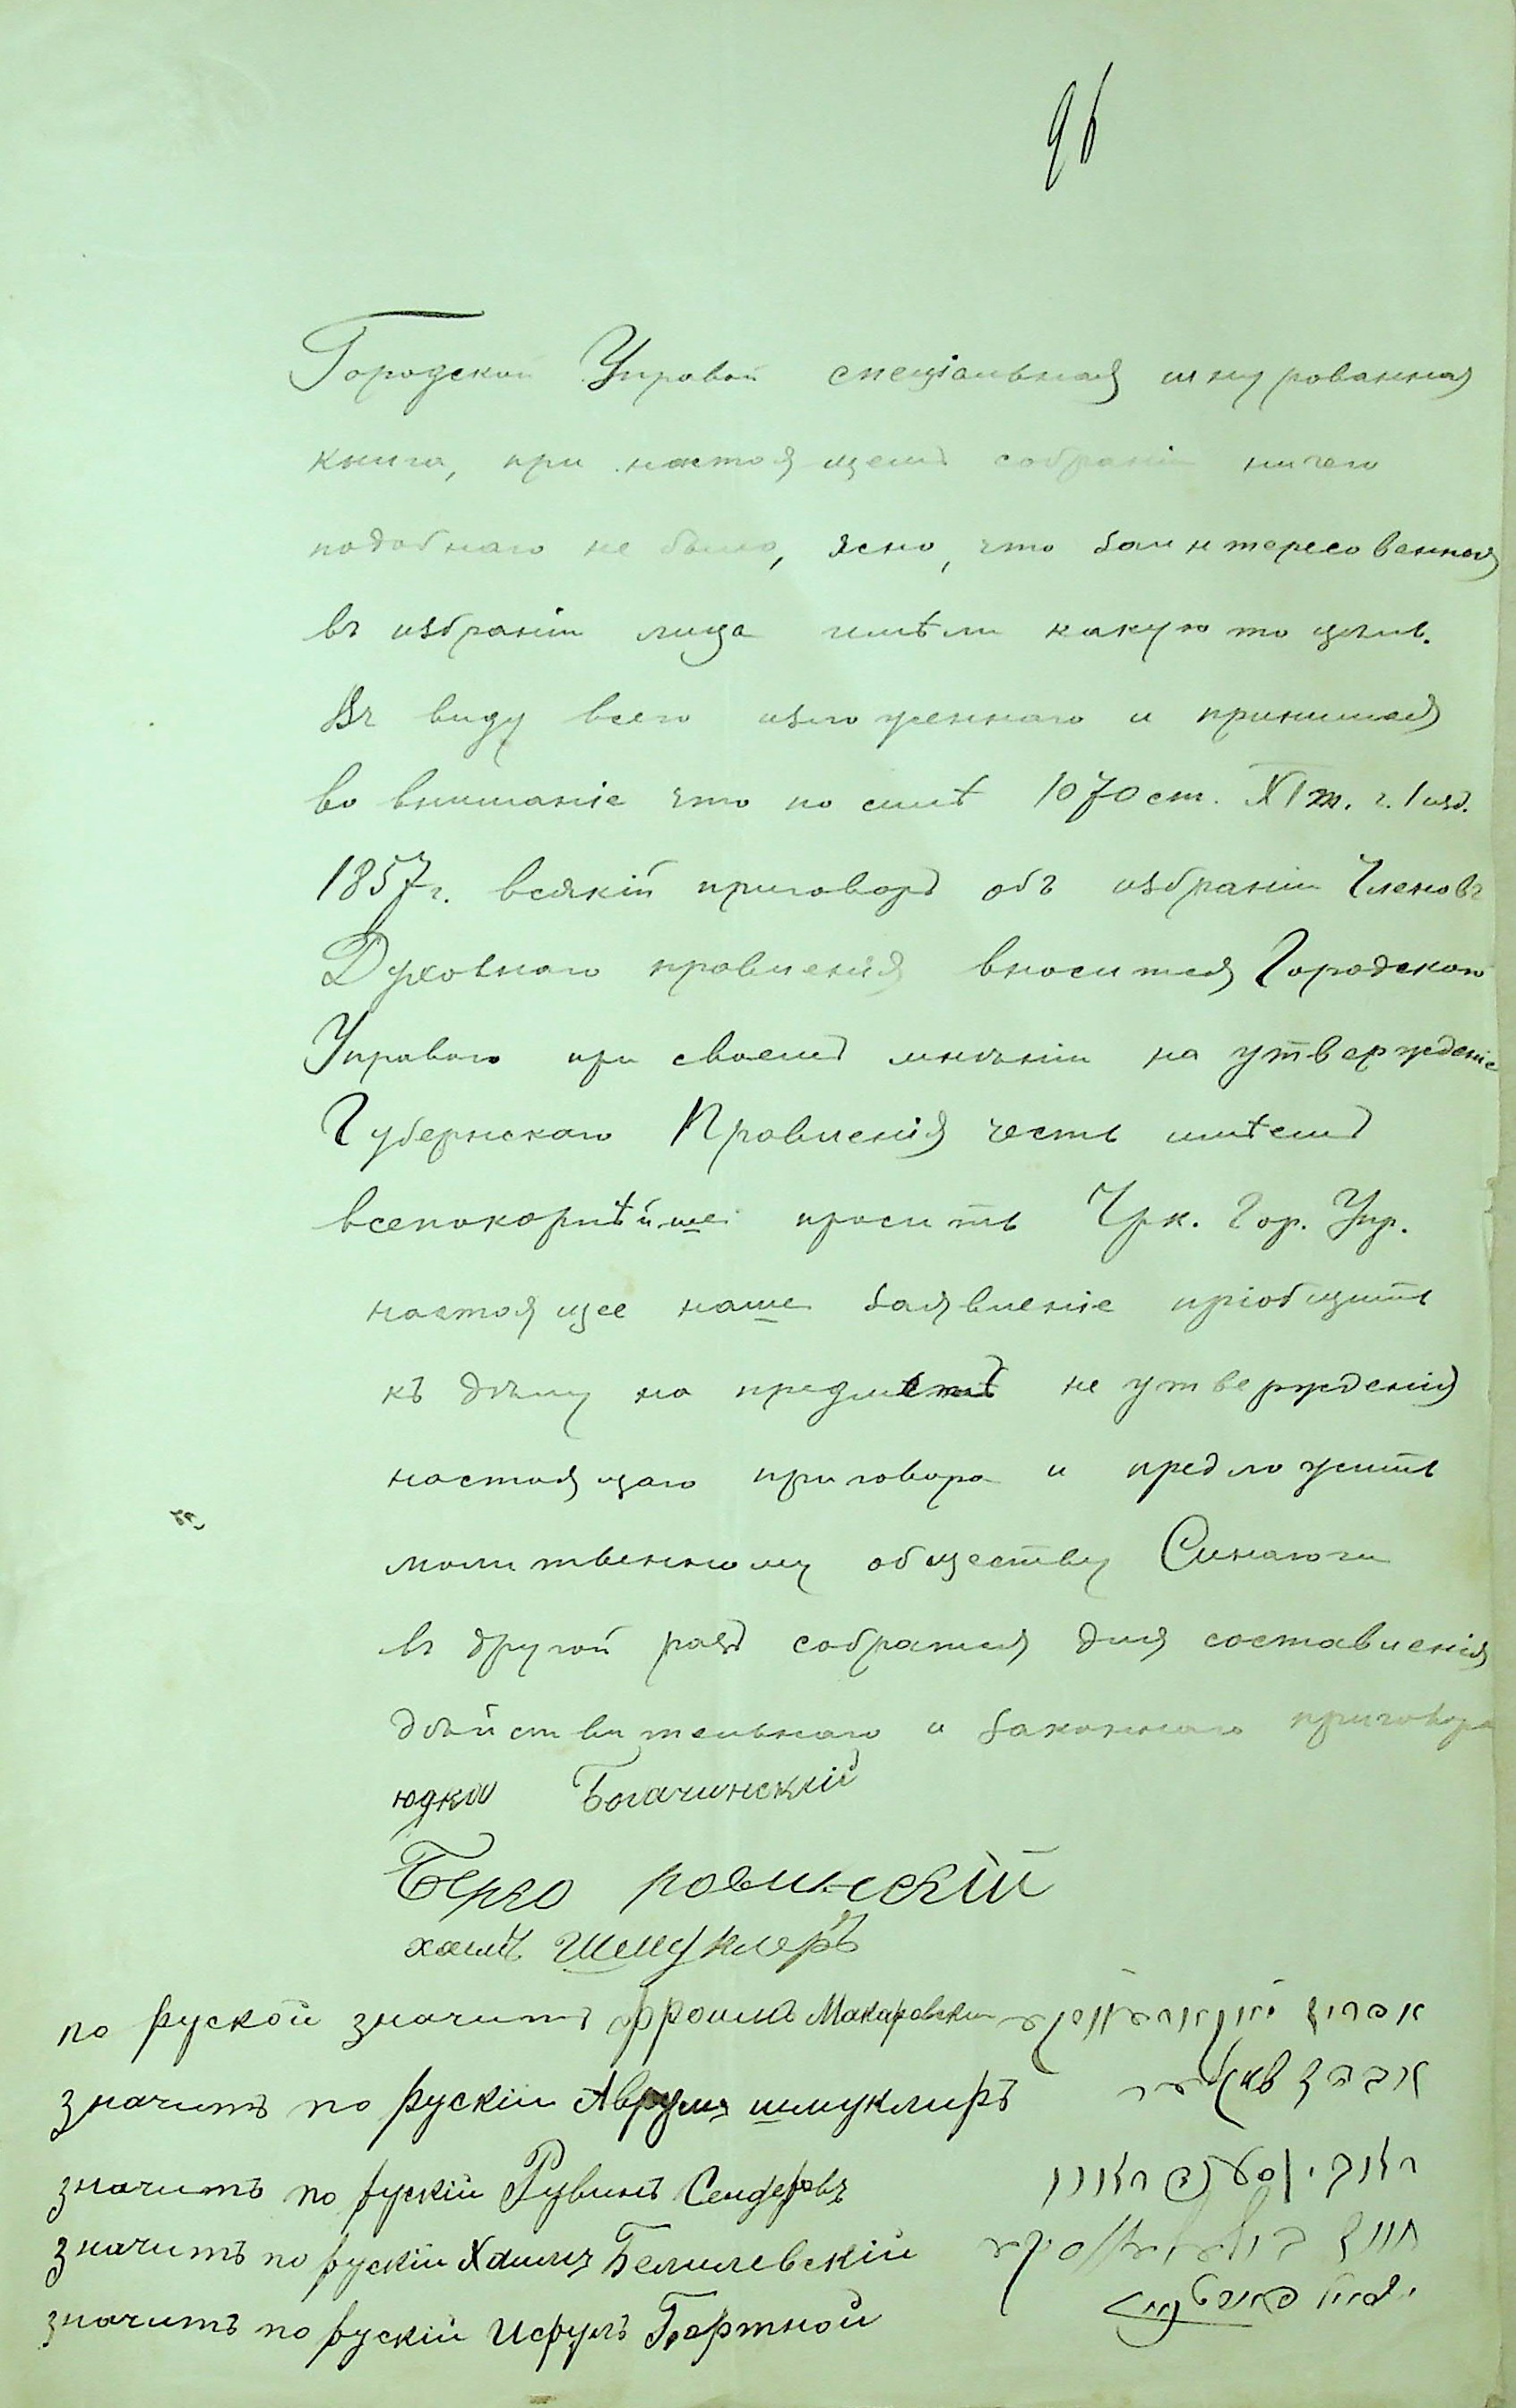 96
Городской Управой спеціальная шнурованная
книга, при настоящемъ собраніи ничего
подобнаго не было, ясно, что заинтересованныя
въ избраніи лица имѣли какую то цѣль.
Въ виду всего изложеннаго и принимая
во вниманіе что по силѣ 1070 ст. XI т. ч. 1 изд.
1857 г. всякій приговоръ объ избраніи Членовъ
Духовнаго правленія вносится Городскою
Управою при своемъ мнѣніи на утвержденіе
Губернскаго Правленія честь имѣемъ
всепокорнѣйше просить Чрк. Гор. Упр.
настоящее наше заявленіе пріобщить
къ дѣлу на предметъ не утвержденія
настоящаго приговора и предложить
молитвенному обществу Синагоги
въ другой разъ собраться для составленія
дѣйствительнаго и законнаго приговора
юдко Богачинскій
Берко ровинскій
хаимъ Шмуклеръ
по руской значитъ Фроимъ Макаровски
значитъ по рускіи Аврумъ шмуклиръ
значитъ по рускіи Рувинъ Сендеровъ
значитъ по рускіи Хаимъ Белилевскіи
значитъ по рускіи Исрулъ Портной